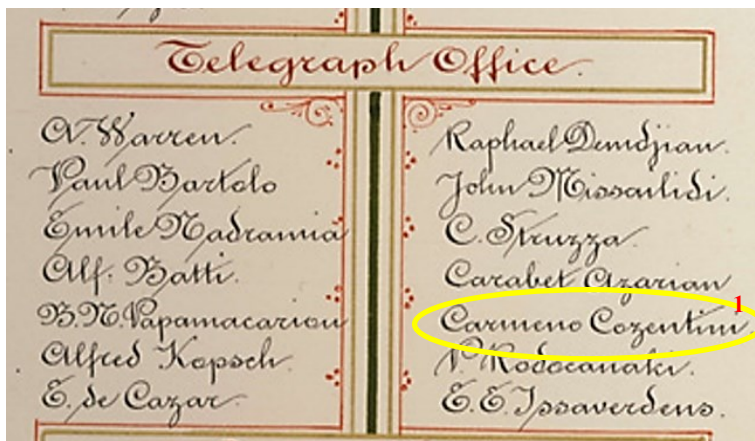 Telegraph Office.
A. Warren.
Paul Bartolo
Emile Nadramia
Alf. Batti.
B. N. Papamacariou
Alfred Kopsch.
E. de Cazar.
Raphael Demdjian.
John Missailidi.
C. Struzza.
Carabet Azarian
Carmeno Cozentini
1
P. Rodocanaki.
E. E. Issaverdens.